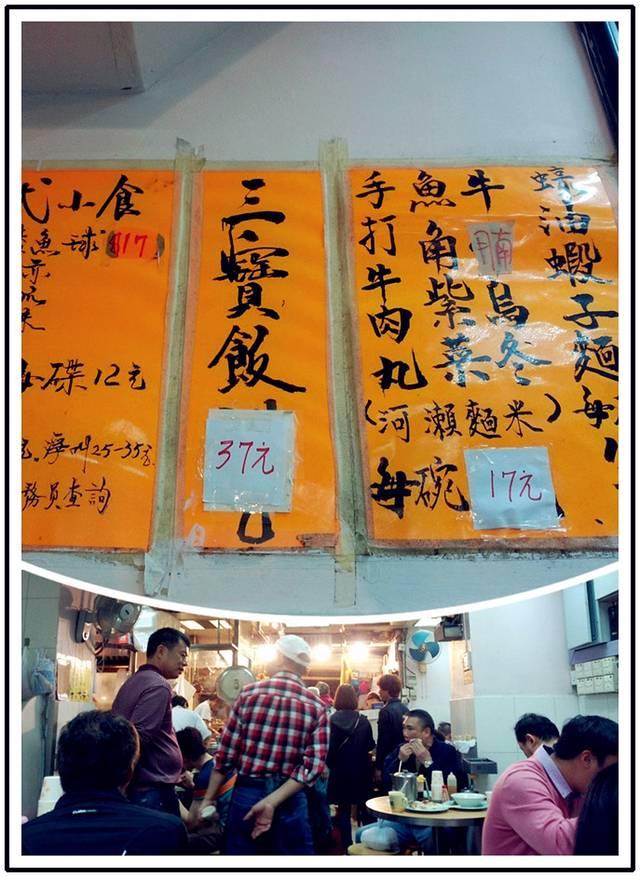 小食
魚球 $17
碟12元
淨叫25-35元
務員查詢
三寶飯
37元
蠔油蝦子麵每
牛腩烏冬
魚角紫菜
手打牛肉丸
(河瀨麵米)
每碗 17元